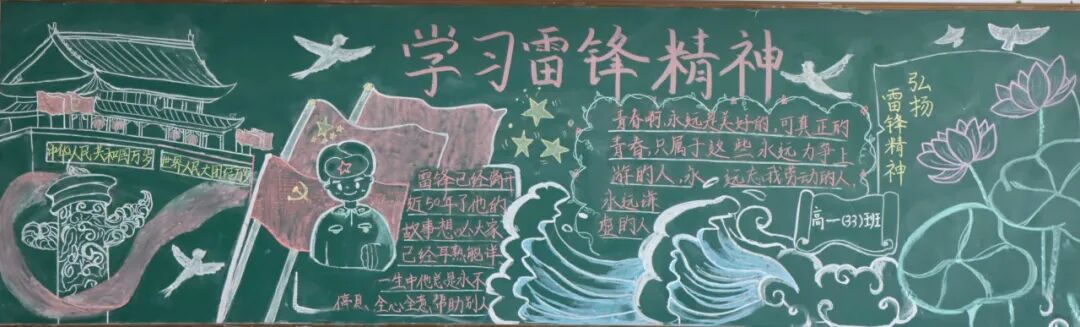 学习雷锋精神
中华人民共和国万岁
世界人民大团结万岁
雷锋已经离开
近50年了他的
故事想必大家
已经耳熟能详
一生中他总是永不
停息，全心全意，帮助别人
青春啊，永远是美好的，可真正的
青春，只属于这些永远力争上
游的人，永远忘我劳动的人，
永远谦
虚的人
高一(33)班
弘扬
雷锋精神